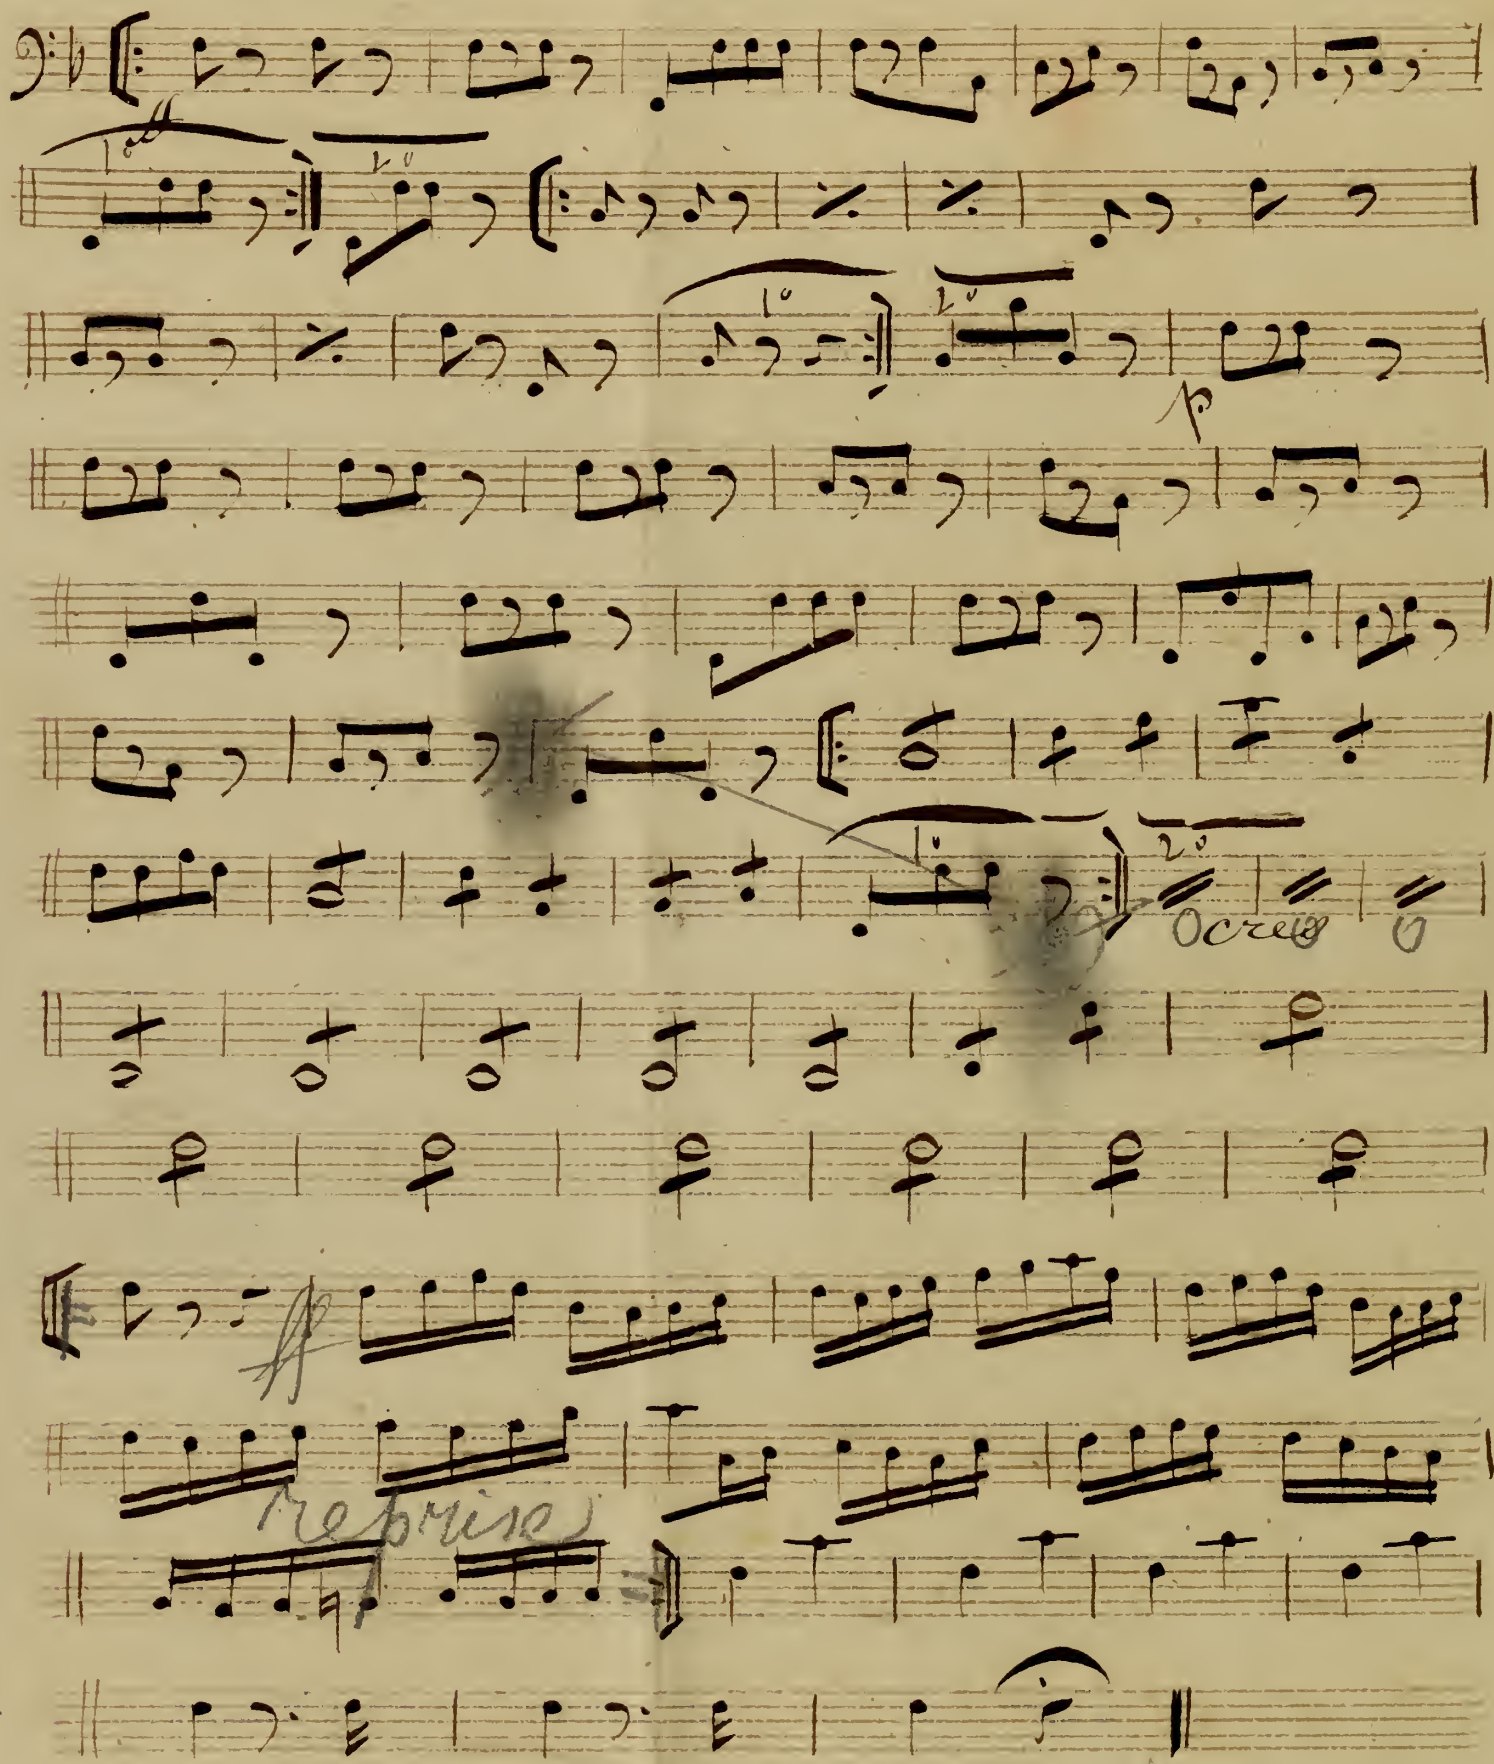 ff
1º
2º
1º
2º
p
1º
2º
cres
ff
reprise